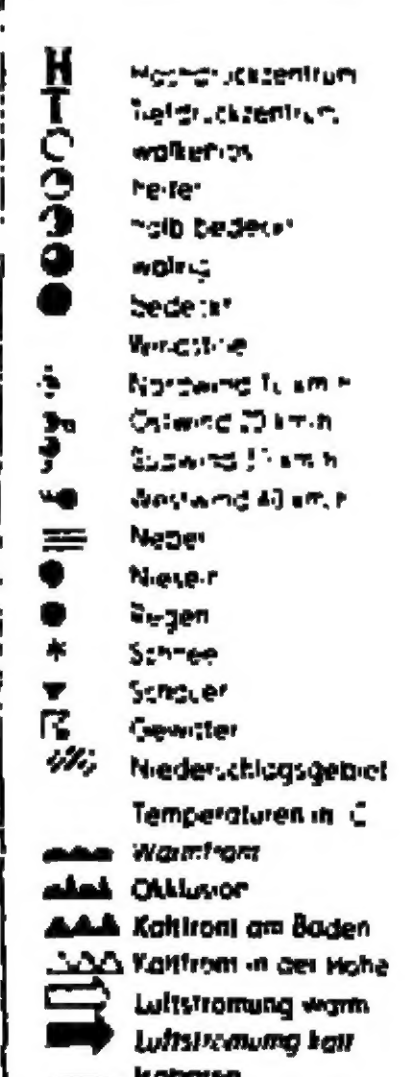 H Hochdruckzentrum
T Tiefdruckzentrum
wolkenlos
heiter
halb bedeckt
wolkig
bedeckt
Windstille
Nordwind 10 km/h
Ostwind 20 km/h
Südwind km/h
Westwind 40 km/h
Nebel
Nieseln
Regen
Schnee
Schauer
Gewitter
Niederschlagsgebiet
Temperaturen in °C
Warmfront
Okklusion
Kaltfront am Boden
Kaltfront in der Höhe
Luftströmung warm
Luftströmung kalt
Isobaren